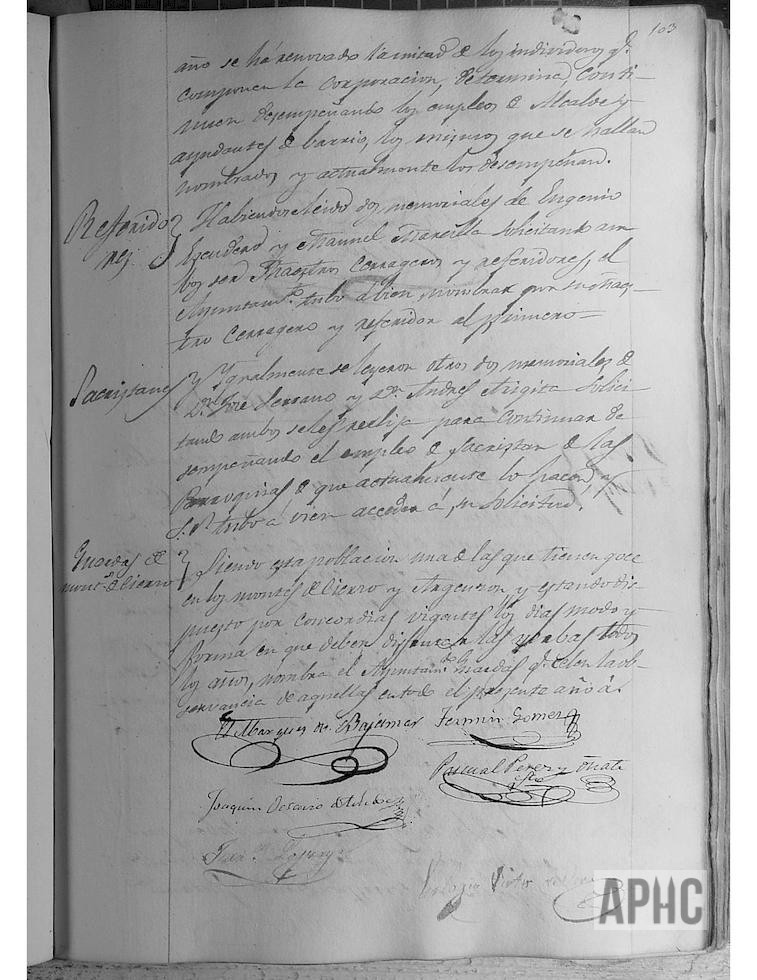 103
año se há renovado la mitad de los individuos qe.
componen la Corporacion, determina, Conti-
nuen desempeñando los empleos de Alcalde y
ayudantes de barrio, los mismos que se hallan
nombrados y actualmente los desempeñan.
Referido
res.
Habiendose leido dos memoriales de Eugenio
Escudero y Manuel Mansilla solicitando am
bos ser Maestros Cerrageros y referidores, el
Ayuntamto. tubo á bien nombrar por su Maes-
tro Cerragero y referidor al primero
Sacristanes
Ygualmente se leyeron otros dos memoriales de
Dn. José Serrano y Dn. Andres solici-
tando ambos se les reelija para continuar de
sempeñando el empleo de Sacristan de las
Parroquias de que actualmente lo hacen y
S.S. tubo á vien acceder á su solicitud.
Guardas de
monte de Cierzo
Siendo esta poblacion una de las que tienen goce
en los montes de Cierzo y Argenzon y estando dis-
puesto por concordias vigentes los dias modo y
forma en que deben disfrutar las yerbas todos
los años, nombra el Ayuntamto. Guardas qe. celen la ob-
servancia de aquellas en todo el presente año á.
El Marques de Bajamar
Fermin Gomez
Pascual Perez y Oñate
Joaquin
Franco. Lopez
APHC